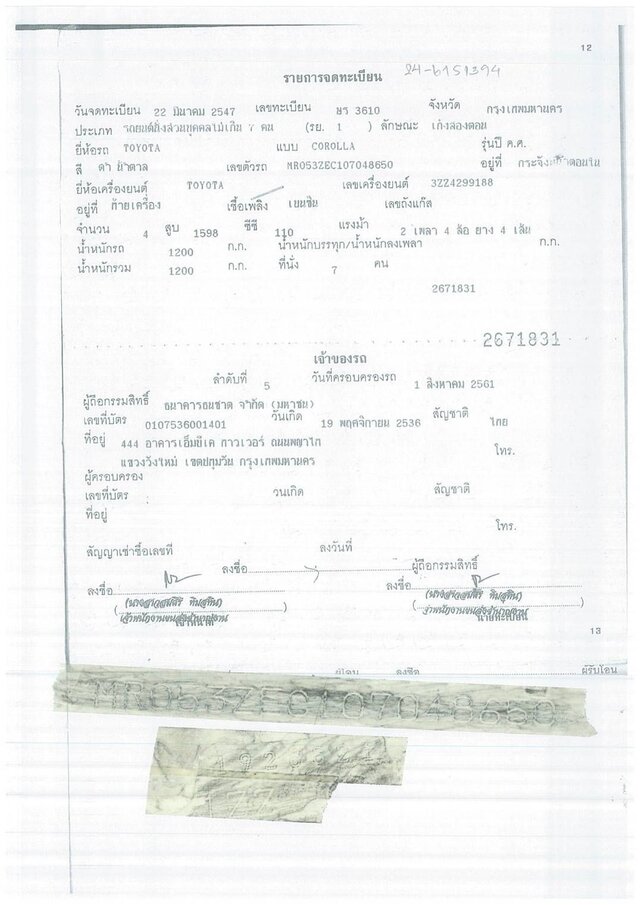 12
รายการจดทะเบียน 24-6151394
วันจดทะเบียน 22 มีนาคม 2547 เลขทะเบียน ษร 3610 จังหวัด กรุงเทพมหานคร
ประเภท รถยนต์นั่งส่วนบุคคลไม่เกิน 7 คน (รย. 1 ) ลักษณะ เก๋งสองตอน
ยี่ห้อรถ TOYOTA แบบ COROLLA รุ่นปี ค.ศ.
สี ดำ น้ำตาล เลขตัวรถ MR053ZEC107048650 อยู่ที่
ยี่ห้อเครื่องยนต์ TOYOTA เลขเครื่องยนต์ 3ZZ4299188
อยู่ที่ ท้ายเครื่อง เชื้อเพลิง เบนซิน เลขถังแก๊ส
จำนวน 4 สูบ 1598 ซีซี 110 แรงม้า 2 เพลา 4 ล้อ ยาง 4 เส้น
น้ำหนักรถ 1200 ก.ก. น้ำหนักบรรทุก/น้ำหนักลงเพลา ก.ก.
น้ำหนักรวม 1200 ก.ก. ที่นั่ง 7 คน
2671831
2671831
เจ้าของรถ
ลำดับที่ 5 วันที่ครอบครองรถ 1 สิงหาคม 2561
ผู้ถือกรรมสิทธิ์ ธนาคารธนชาต จำกัด (มหาชน)
เลขที่บัตร 0107536001401 วันเกิด 19 พฤศจิกายน 2536 สัญชาติ ไทย
ที่อยู่ 444 อาคารเอ็มบีเค ทาวเวอร์ ถนนพญาไท โทร.
แขวงวังใหม่ เขตปทุมวัน กรุงเทพมหานคร
ผู้ครอบครอง
เลขที่บัตร วันเกิด สัญชาติ
ที่อยู่
โทร.
สัญญาเช่าซื้อเลขที่ ลงวันที่
ลงชื่อ ผู้ถือกรรมสิทธิ์
ลงชื่อ ลงชื่อ
เจ้าพนักงานขนส่งชำนาญงาน เจ้าพนักงานขนส่งชำนาญงาน
นายทะเบียน
13
ผู้โอน ลงชื่อ ผู้รับโอน
MR053ZEC107048650